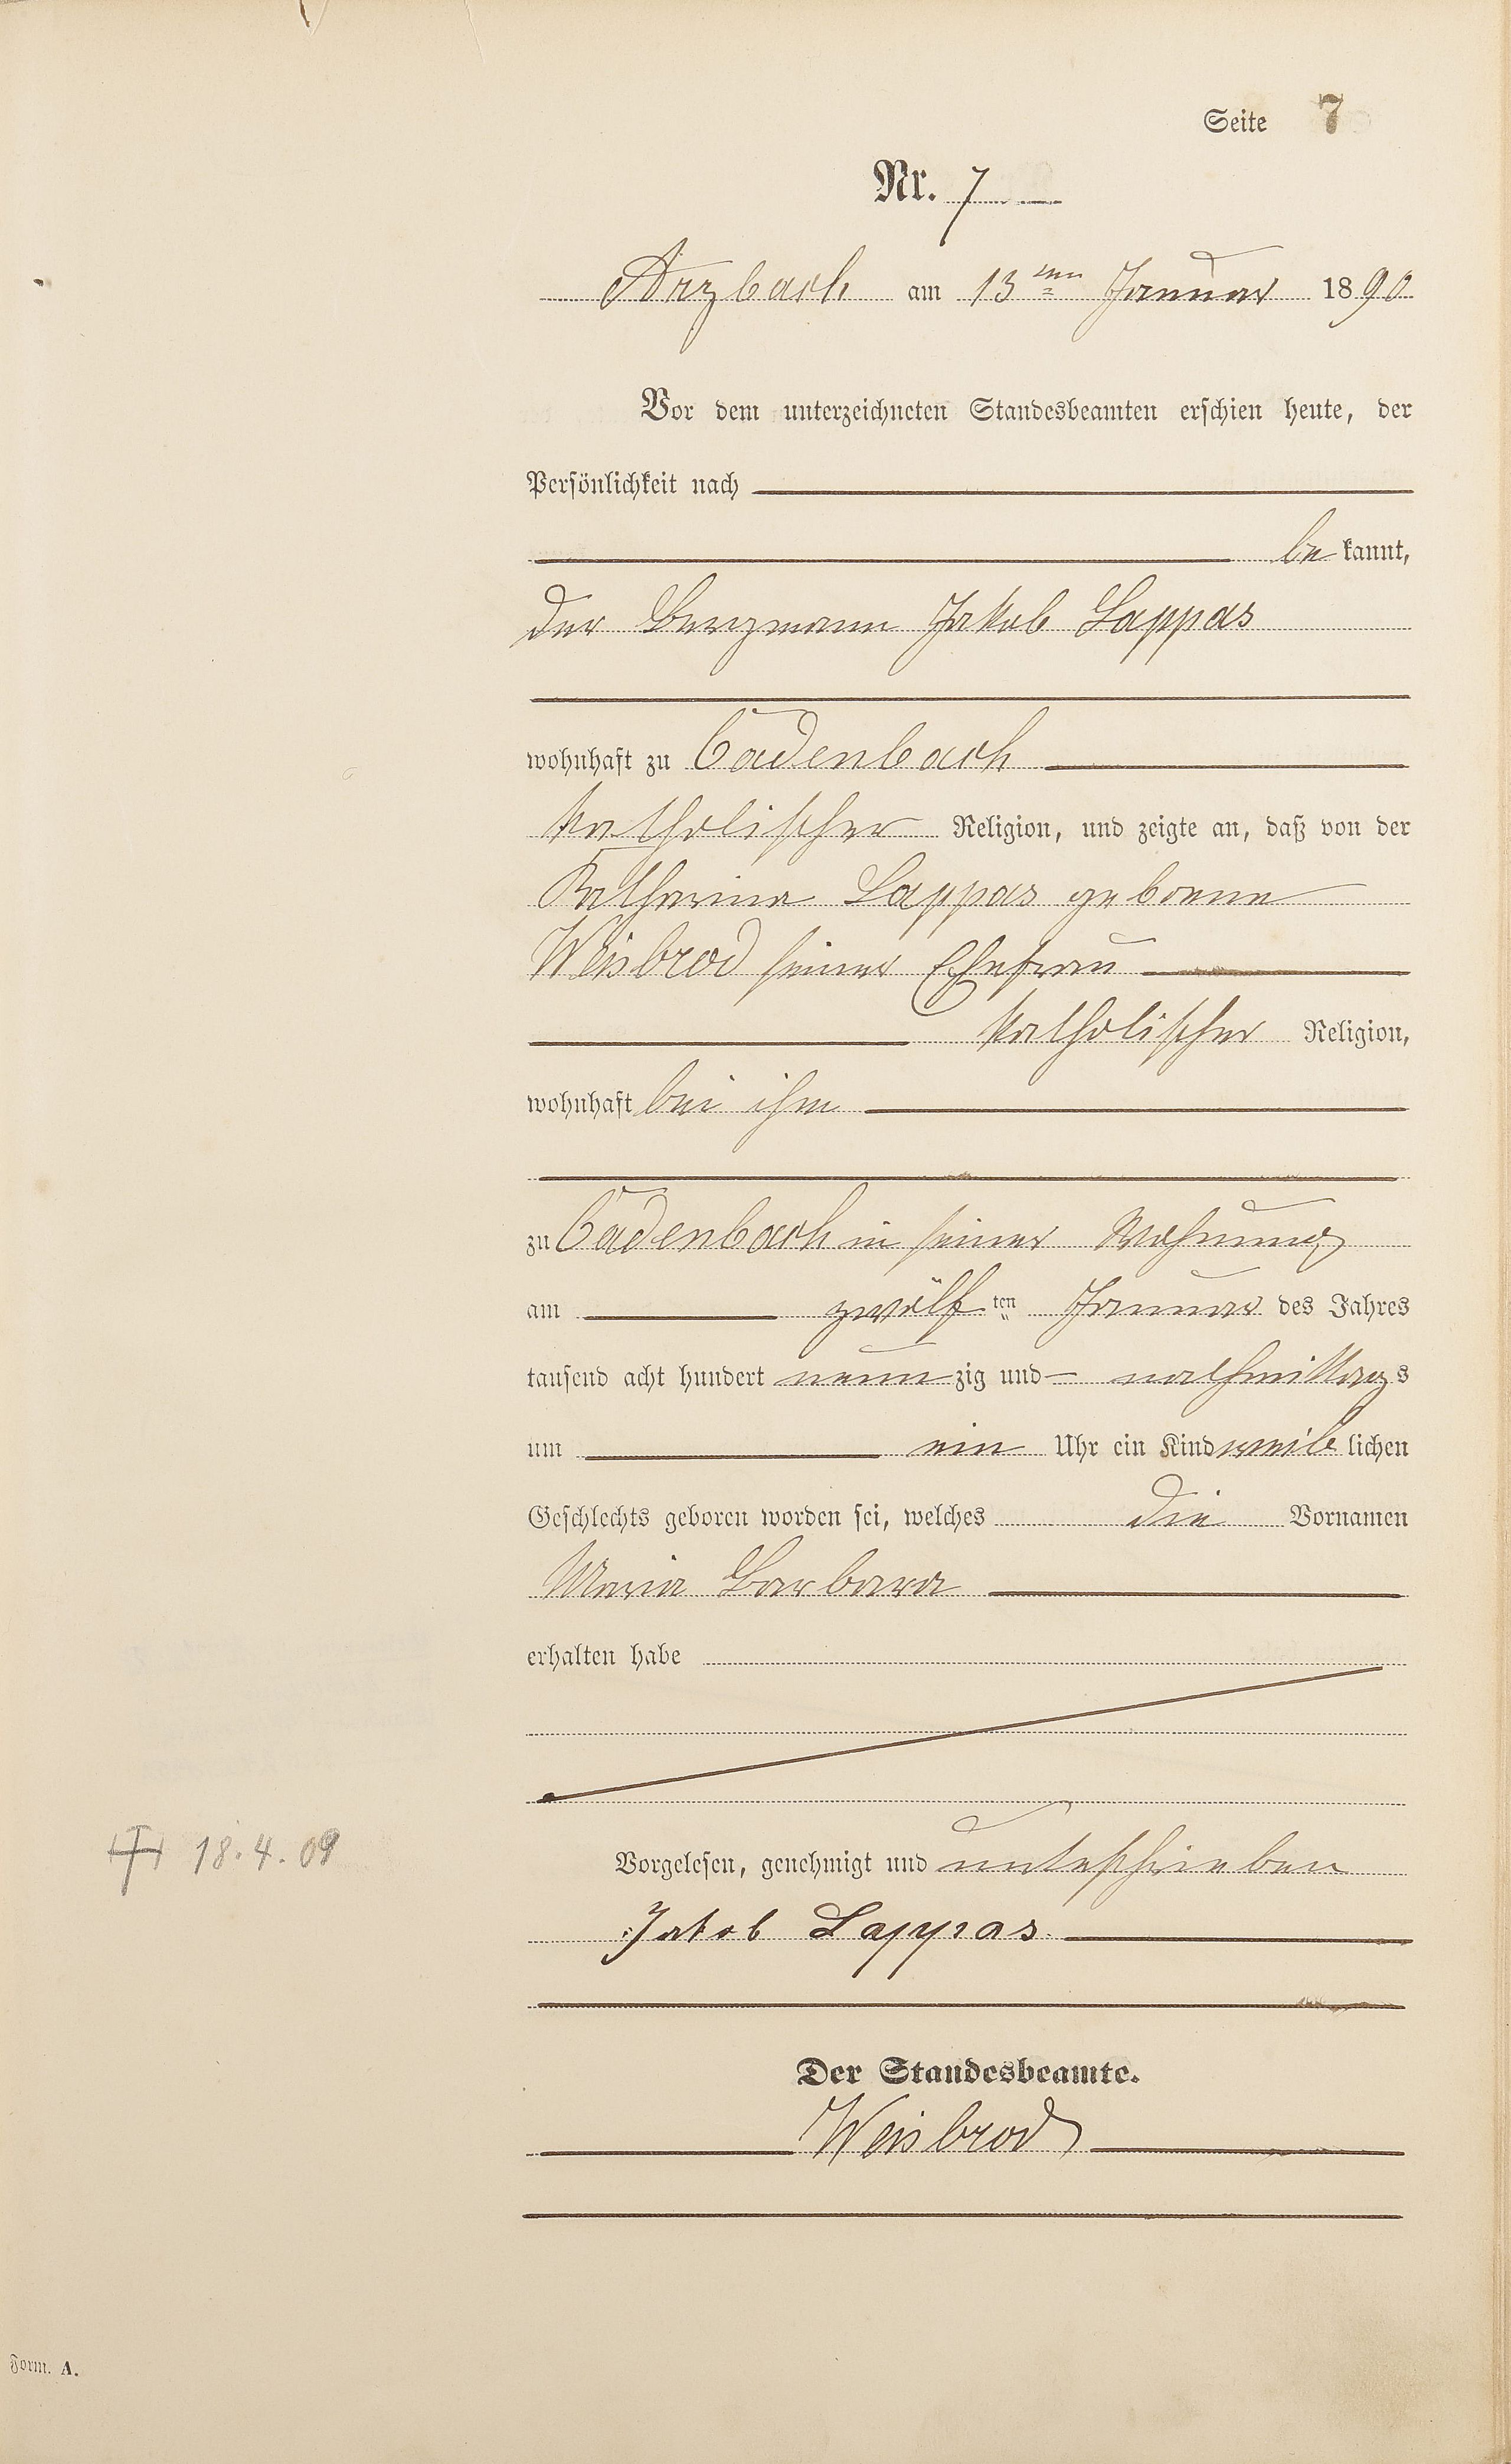 Seite 7
Nr. 7
Arzbach am 13ten Januar 1890
Vor dem unterzeichneten Standesbeamten erschien heute, der
Persönlichkeit nach
be kannt,
der Bergmann Jakob Lappas
wohnhaft zu Cadenbach
katholischer Religion, und zeigte an, daß von der
Katharina Lappas geborene
Weisbrod seiner Ehefrau
katholischer Religion,
wohnhaft bei ihm
zu Cadenbach in seiner Wohnung
am zwölf ten Januar des Jahres
tausend acht hundert neun zig und – nachmittags
um ein Uhr ein Kind weib lichen
Geschlechts geboren worden sei, welches die Vornamen
Maria Barbara
erhalten habe
18.4.09
Vorgelesen, genehmigt und unterschrieben
Jakob Lappas.
Der Standesbeamte.
Weisbrod
Form. A.